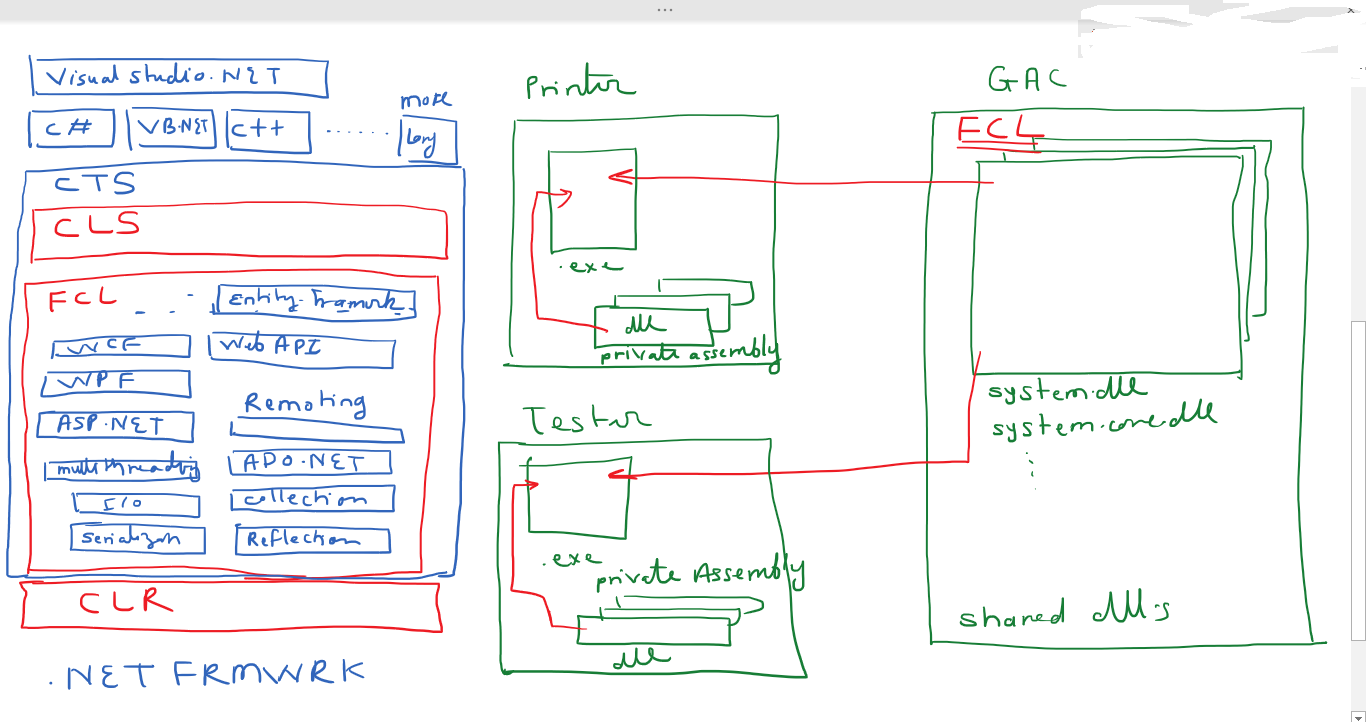 Visual Studio.NET
C#
VB.NET
C++
......
more
lang
CTS
CLS
FCL
Entity Framwrk
WCF
Web API
WPF
Remoting
ASP.NET
ADO.NET
I/O
collection
Reflection
CLR
.NET FRMWRK
Printer
.exe
dll
private assembly
Tester
.exe
private Assembly
dll
GAC
FCL
system.dll
system.core.dll
shared dll's